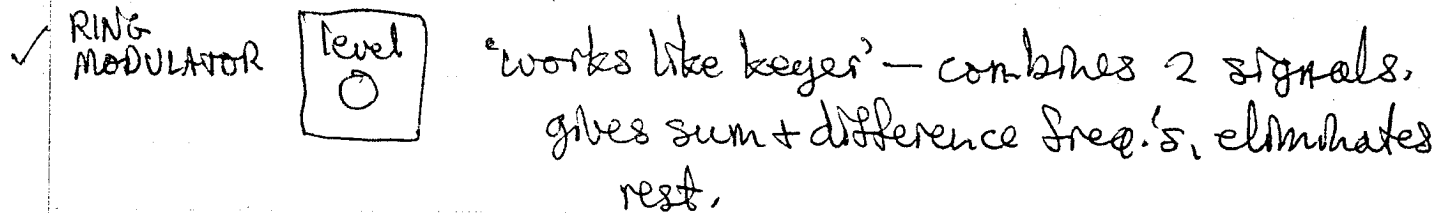 ✓ RING
MODULATOR
level
'works like keyer' – combines 2 signals.
gives sum + difference freq.'s, eliminates
rest.